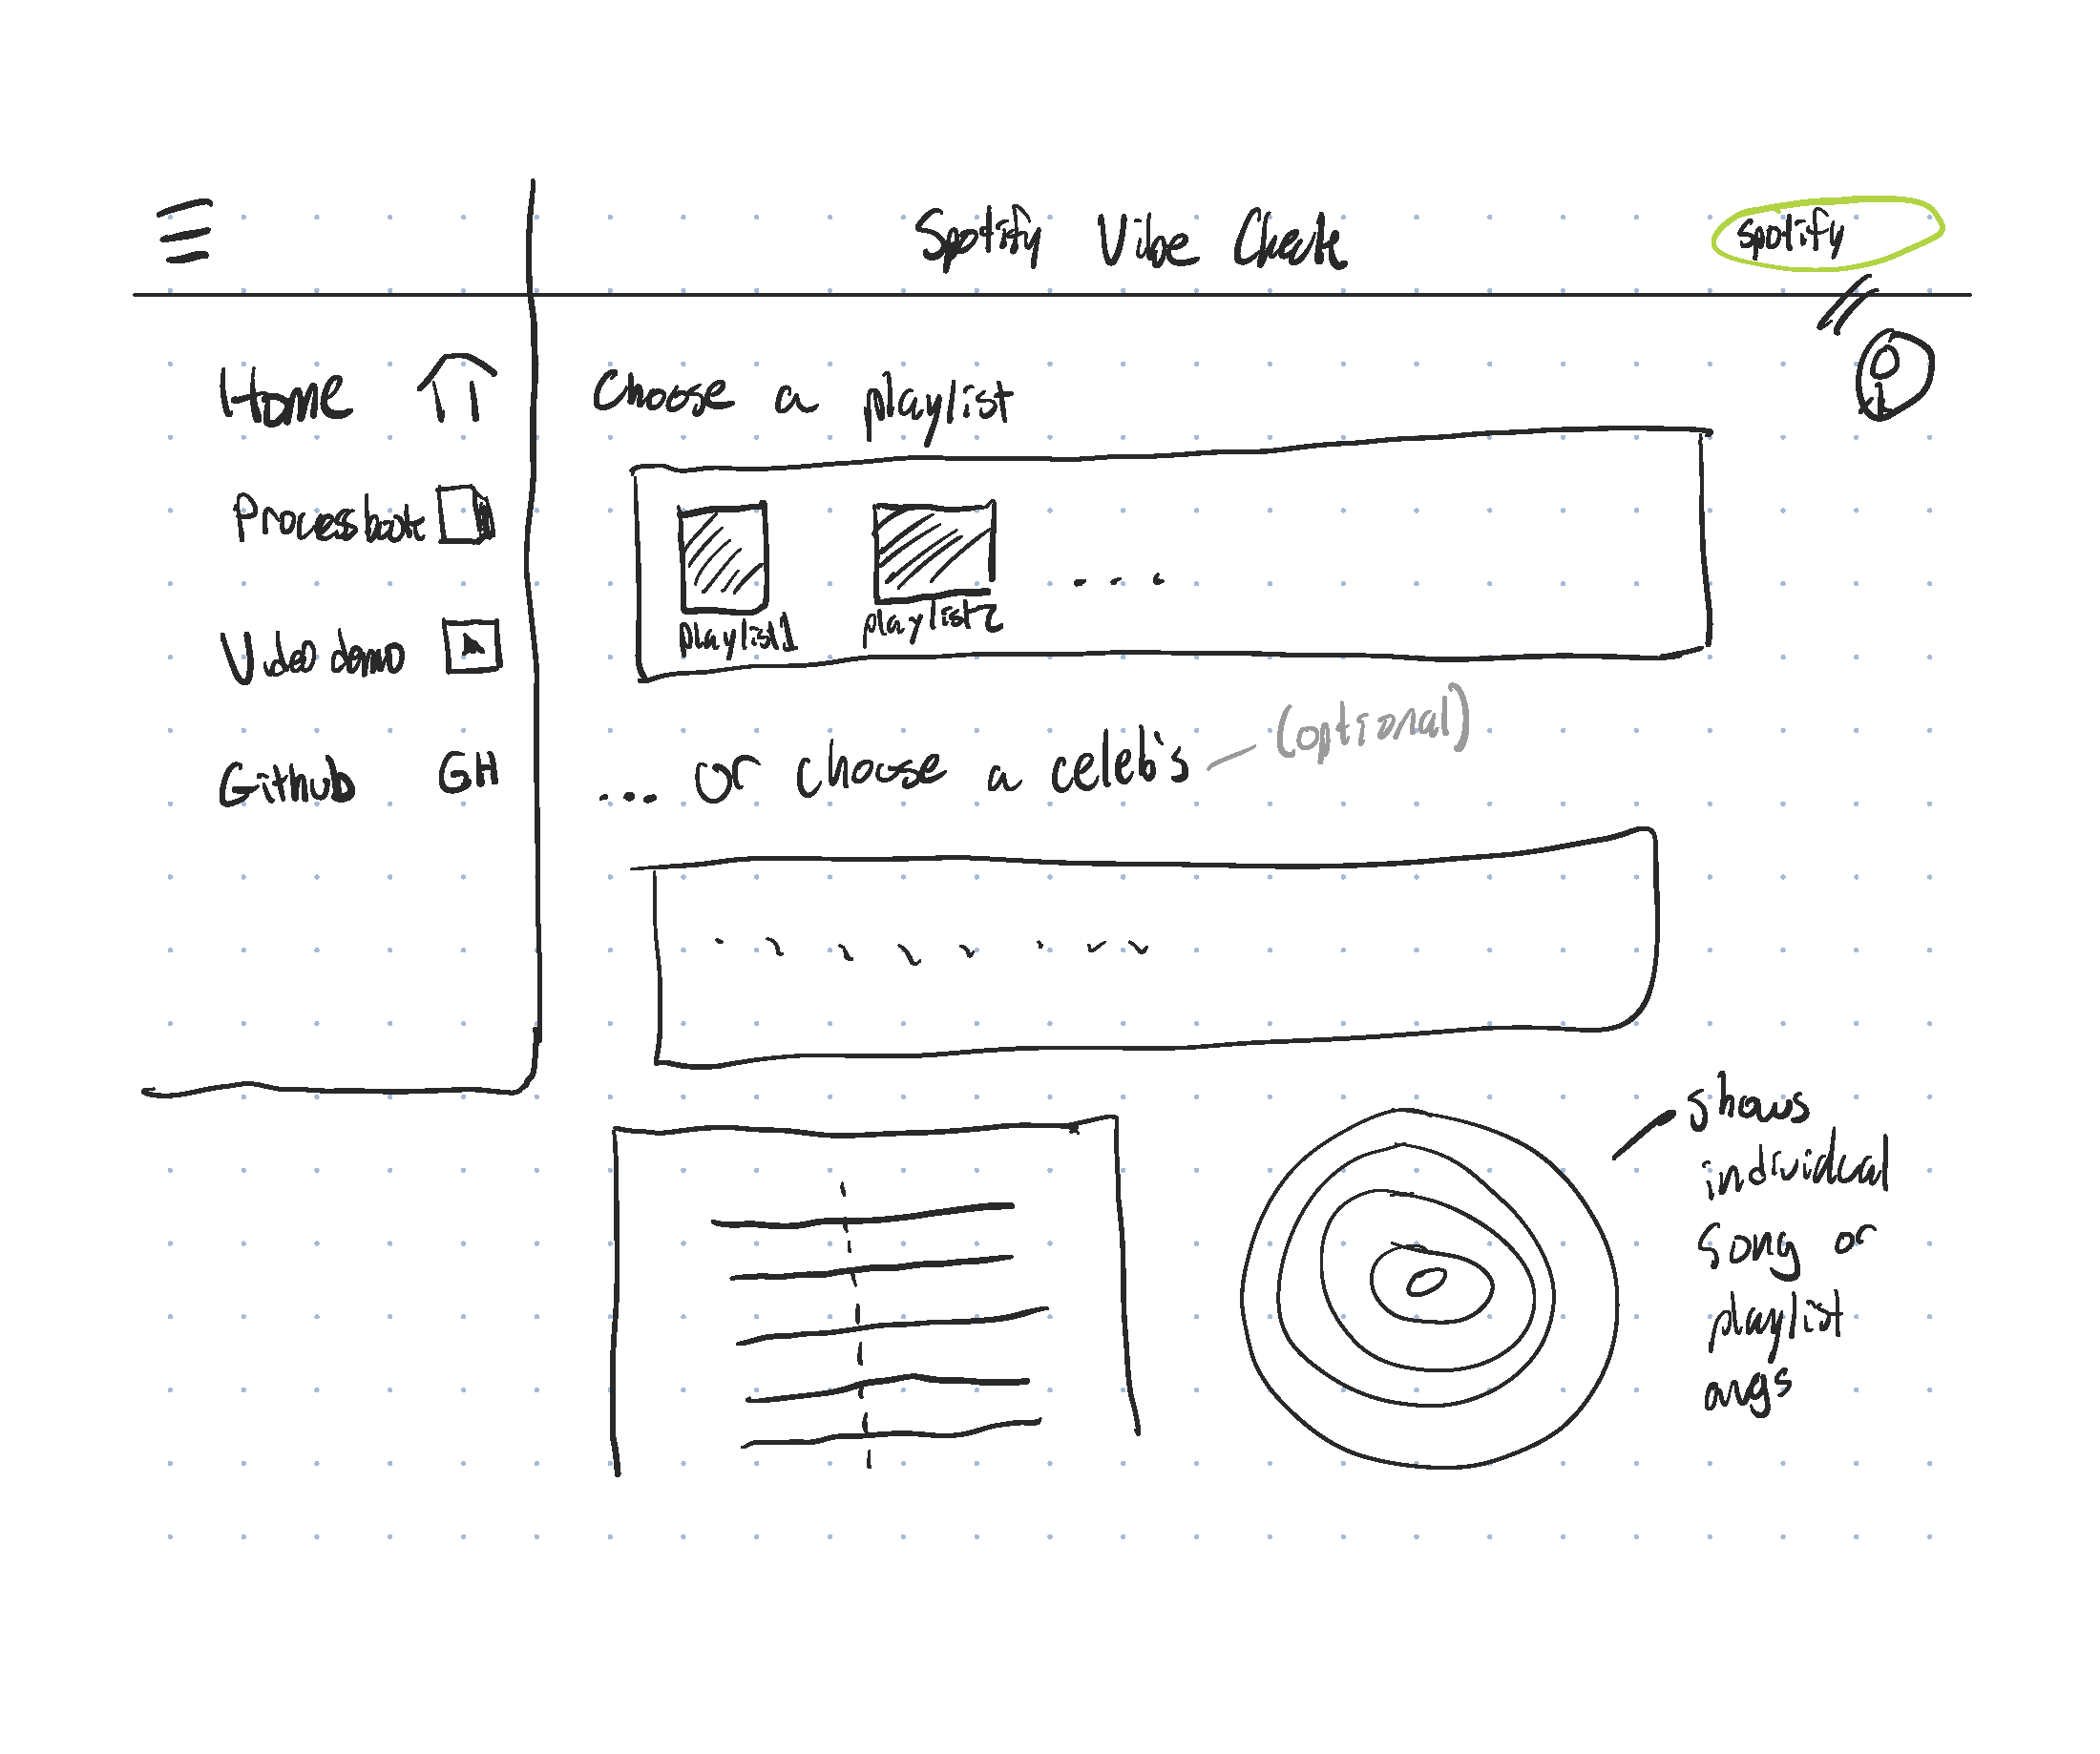 Spotify Vibe Check
Spotify
Home
Processbook
Video demo
Github GH
Choose a playlist
playlist1 playlist2 ...
... or choose a celeb's (optional)
shows
individual
song or
playlist
avgs